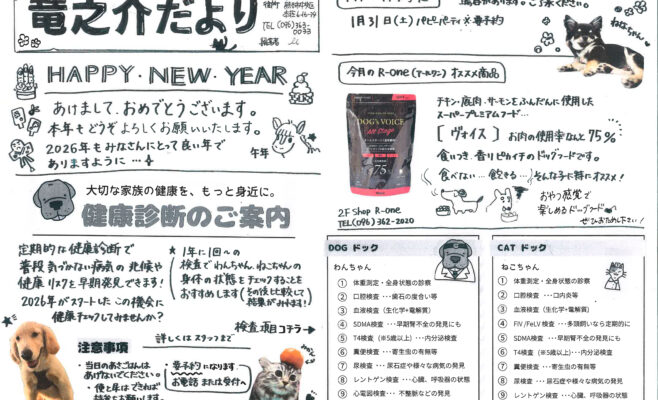 竜之介だより
TEL(096)363-0033
HAPPY・NEW・YEAR
あけまして、おめでとうございます。
本年もどうぞよろしくお願いいたします。
2026年もみなさんにとって良い年で
ありますように…
午年
大切な家族の健康を、もっと身近に。
健康診断のご案内
定期的な健康診断で
普段気づかない病気の兆候や
健康リスクを早期発見できます!
2026年がスタートしたこの機会に
健康チェックしてみませんか?
★1年に1回への
検査でわんちゃん、ねこちゃんの
身体の状態をチェックすることを
おすすめします(その後比較して
結果がみれます!)
検査項目コチラ→
詳しくはスタッフまで
注意事項
・当日のあさごはんは
あげないでください。
・便と尿はできれば
持参をお願いします
・要予約になります
お電話または受付へ
1月31日(土)パピーパーティ※要予約
ねねちゃん
今月のR-one(アールワン)オススメ商品
DOG'S VOICE
75
チキン・鹿肉・サーモンをふんだんに使用した
スーパープレミアムフード…
[ヴォイス]お肉の使用率なんと75%
食いつき、香りピカイチのドッグフードです。
食べない…飽きる…そんな子に特にオススメ!
おやつ感覚で
楽しめるドッグフード
ぜひお試し下さい!
2F Shop R-one
TEL(096)362-2020
DOG ドック
わんちゃん
① 体重測定・全身状態の診察
② 口腔検査・・・歯石の度合い等
③ 血液検査(生化学+電解質)
④ SDMA検査・・・早期腎不全の発見にも
⑤ T4検査(※5歳以上)・・・内分泌検査
⑥ 糞便検査・・・寄生虫の有無等
⑦ 尿検査・・・尿石症や様々な病気の発見
⑧ レントゲン検査・・・心臓、呼吸器の状態
⑨ 心電図検査・・・不整脈などの発見
CAT ドック
ねこちゃん
① 体重測定・全身状態の診察
② 口腔検査・・・口内炎等
③ 血液検査(生化学+電解質)
④ FIV/FeLV検査・・・多頭飼いなら定期的に
⑤ SDMA検査・・・早期腎不全の発見にも
⑥ T4検査(※5歳以上)・・・内分泌検査
⑦ 糞便検査・・・寄生虫の有無等
⑧ 尿検査・・・尿石症や様々な病気の発見
⑨ レントゲン検査・・・心臓、呼吸器の状態